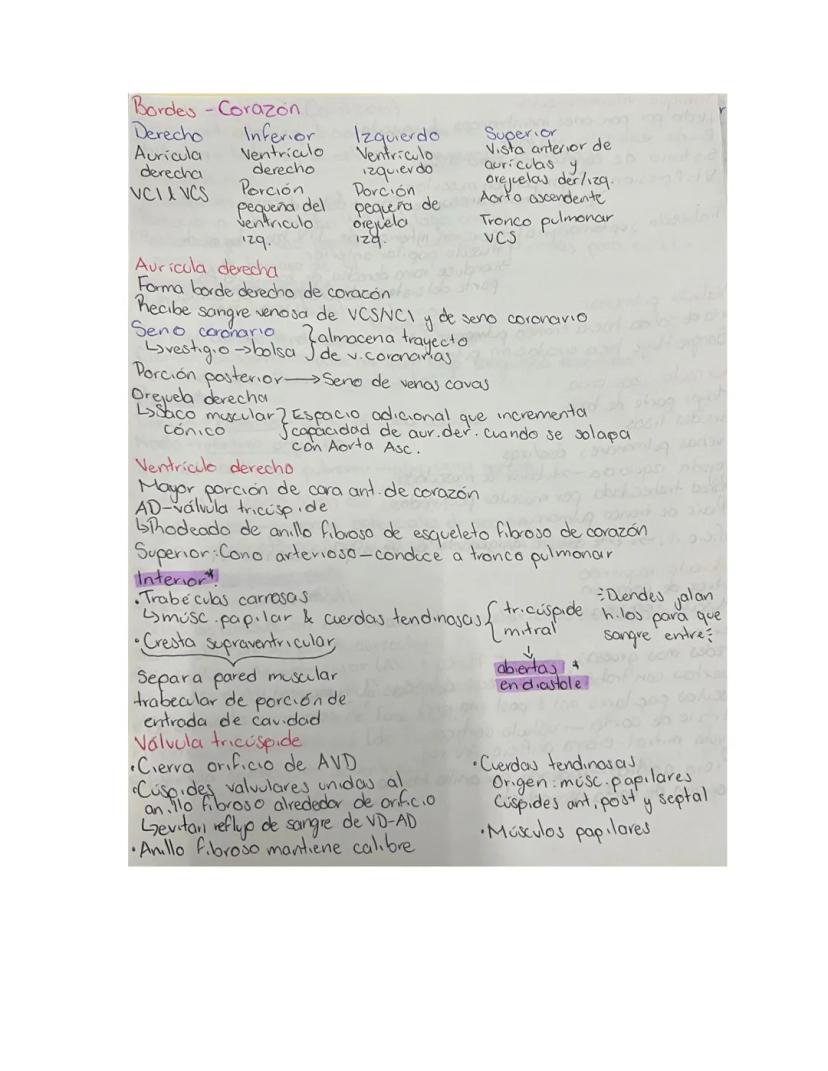 Bordes - Corazón
Derecho Inferior Izquierdo Superior
Aurícula Ventrículo Ventrículo Vista anterior de
derecha derecho izquierdo aurículas y
VCI & VCS Porción Porción orejuelas der/izq.
pequeña del pequeña de Aorta ascendente
ventrículo orejuela Tronco pulmonar
izq. izq. VCS
Aurícula derecha
Forma borde derecho de corazón
Recibe sangre venosa de VCS/VCI y de seno coronario
Seno coronario } almacena trayecto
↳vestigio → bolsa } de v. coronarias
Porción posterior → Seno de venas cavas
Orejuela derecha
↳Saco muscular } Espacio adicional que incrementa
cónico } capacidad de aur. der. cuando se solapa
con Aorta Asc.
Ventrículo derecho
Mayor porción de cara ant. de corazón
AD-válvula tricúspide
↳Rhodeado de anillo fibroso de esqueleto fibroso de corazón
Superior: Cono arterioso - conduce a tronco pulmonar
Interior*
• Trabéculas carnosas
↳músc. papilar & cuerdas tendinosas { tricúspide
mitral
Duendes jalan
hilos para que
sangre entre
↓
abiertas *
en diástole
• Cresta supraventricular
Separa pared muscular
trabecular de porción de
entrada de cavidad
Válvula tricúspide
• Cierra orificio de AVD
• Cúspides valvulares unidas al
anillo fibroso alrededor de orificio
↳evitan reflujo de sangre de VD-AD
• Anillo fibroso mantiene calibre
• Cuerdas tendinosas
Origen: músc. papilares
Cúspides ant, post y septal
• Músculos papilares